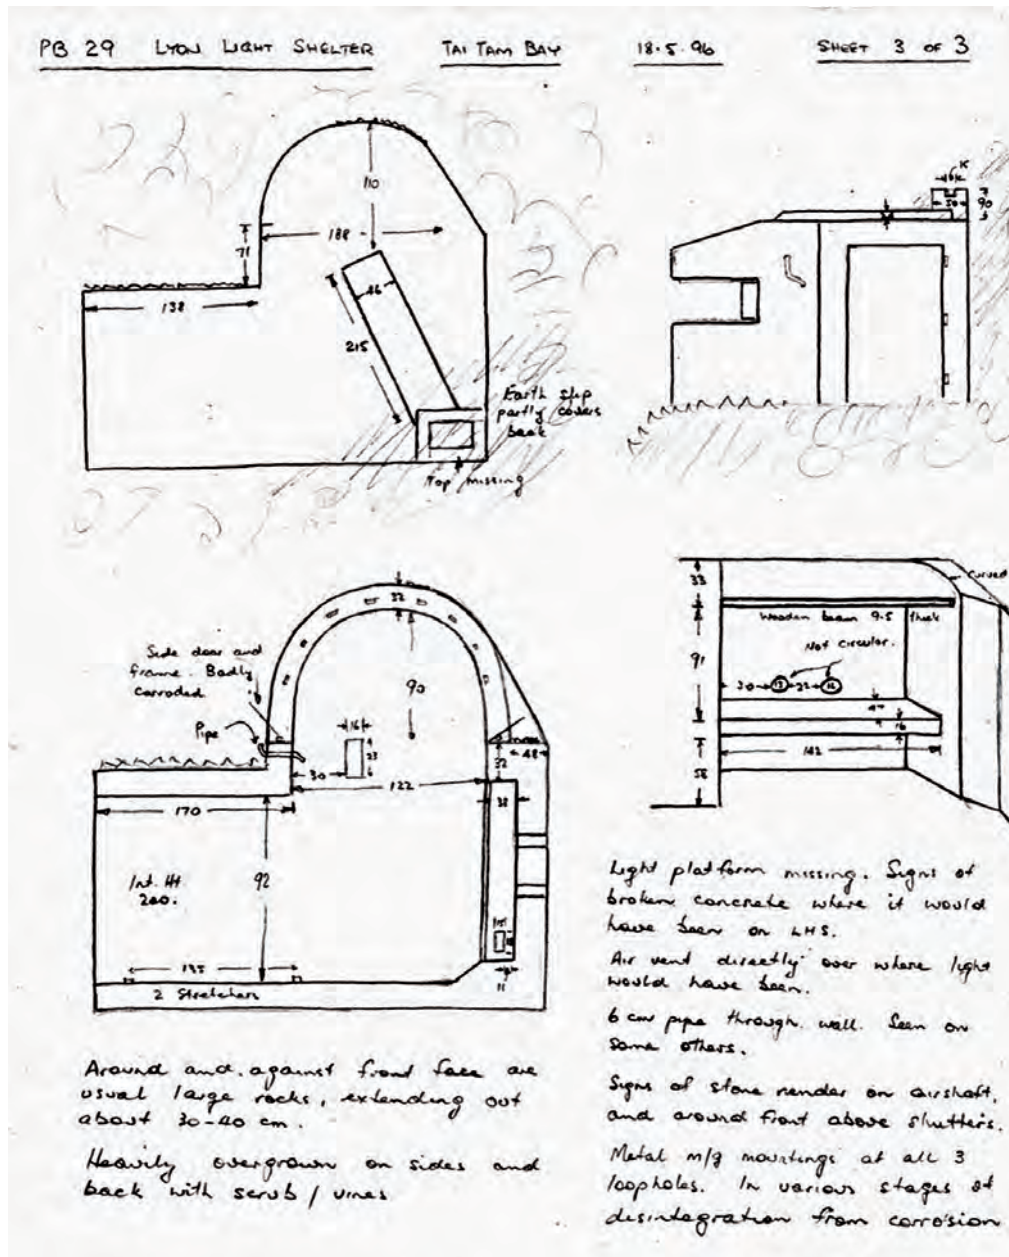 PB 29 LYON LIGHT SHELTER TAI TAM BAY 18.5.96 SHEET 3 OF 3
110
188
71
138
46
215
Earth slip
partly covers
back
Top missing
15
50
90
32
Side door and
frame. Badly
corroded
Pipe
90
16
23
30
122
32
48
38
170
Int. Ht
200.
92
135
2 Stretchers
11
33
Curved
Wooden beam 9.5 thick
Not circular.
91
30 22
16
142
58
Around and against front face are
usual large rocks, extending out
about 30-40 cm.
Heavily overgrown on sides and
back with scrub / vines
Light platform missing. Signs of
broken concrete where it would
have been on LHS.
Air vent directly over where light
would have been.
6 cm pipe through wall. Seen on
some others.
Signs of stone render on airshaft,
and around front above shutters.
Metal m/g mountings at all 3
loopholes. In various stages of
disintegration from corrosion